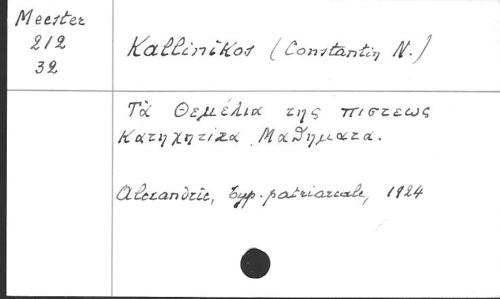 Meester
212
32
Kallinikos (Constantin N.)
Τὰ Θεμέλια της πιστεως
Κατηχητικα Μαθηματα.
Alexandrie, typ. patriarcale, 1924